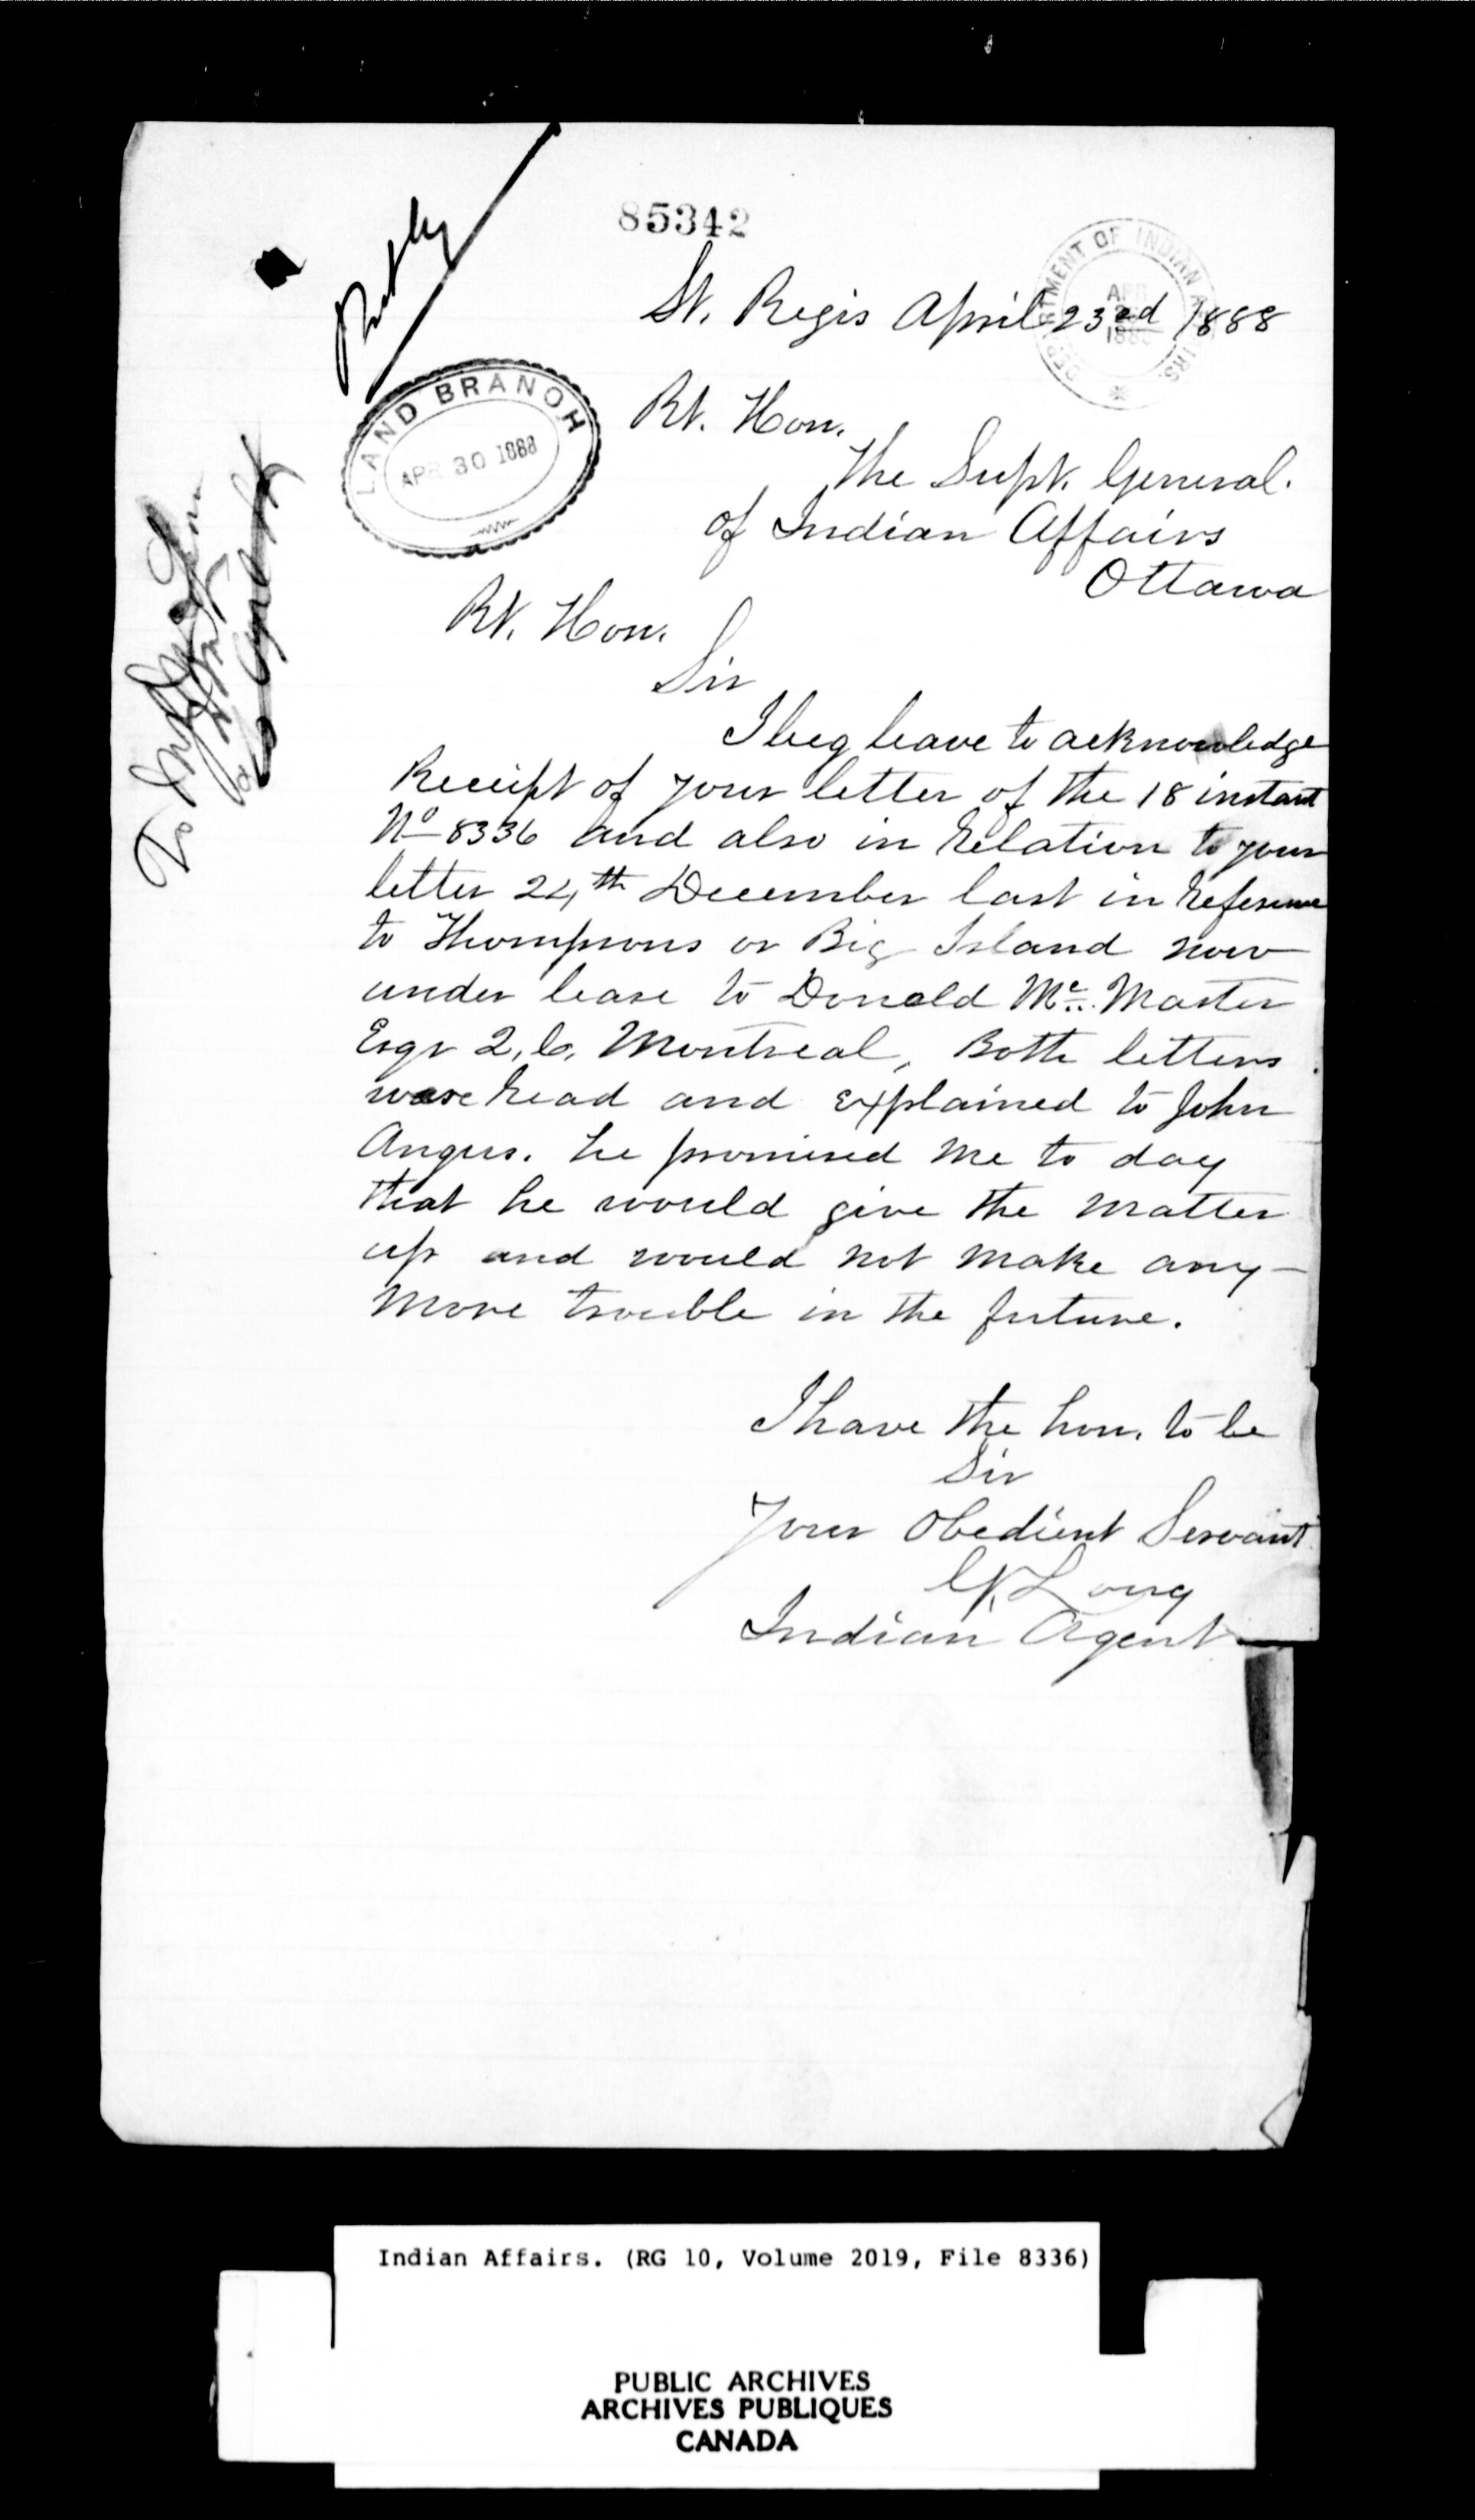 85342
DEPARTMENT OF INDIAN AFFAIRS
APR
188
St. Regis April 23rd 1888
LAND BRANCH
APR 30 1888
Rt. Hon.
The Supt. General.
of Indian Affairs
Ottawa
Rt. Hon.
Sir
I beg leave to acknowledge
Receipt of your letter of the 18 instant
No 8336 and also in Relation to your
letter 24th December last in Reference
to Thompsons or Big Island now
under lease to Donald Mc. Master
Esqr Q.C. Montreal, Both letters
were Read and Explained to John
Angus. he promised me to day
that he would give the Matter
up and would not make any-
More trouble in the future.
I have the hon. to be
Sir
Your Obedient Servant
G. Long
Indian Agent
Indian Affairs. (RG 10, Volume 2019, File 8336)
PUBLIC ARCHIVES
ARCHIVES PUBLIQUES
CANADA